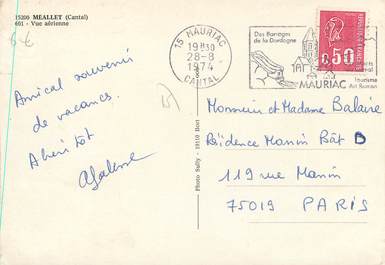 15200 MEALLET (Cantal)
601 - Vue aérienne
15 MAURIAC
19H30
28-8
1974
CANTAL
Des Barrages
de la Dordogne
MAURIAC
Tourisme
Art Roman
0,50
Amical souvenir
de vacances.
A bientôt
Photo Sully - 19110 Bort
Monsieur et Madame Balaire
Résidence Manin Bât D
119 rue Manin
75019 PARIS